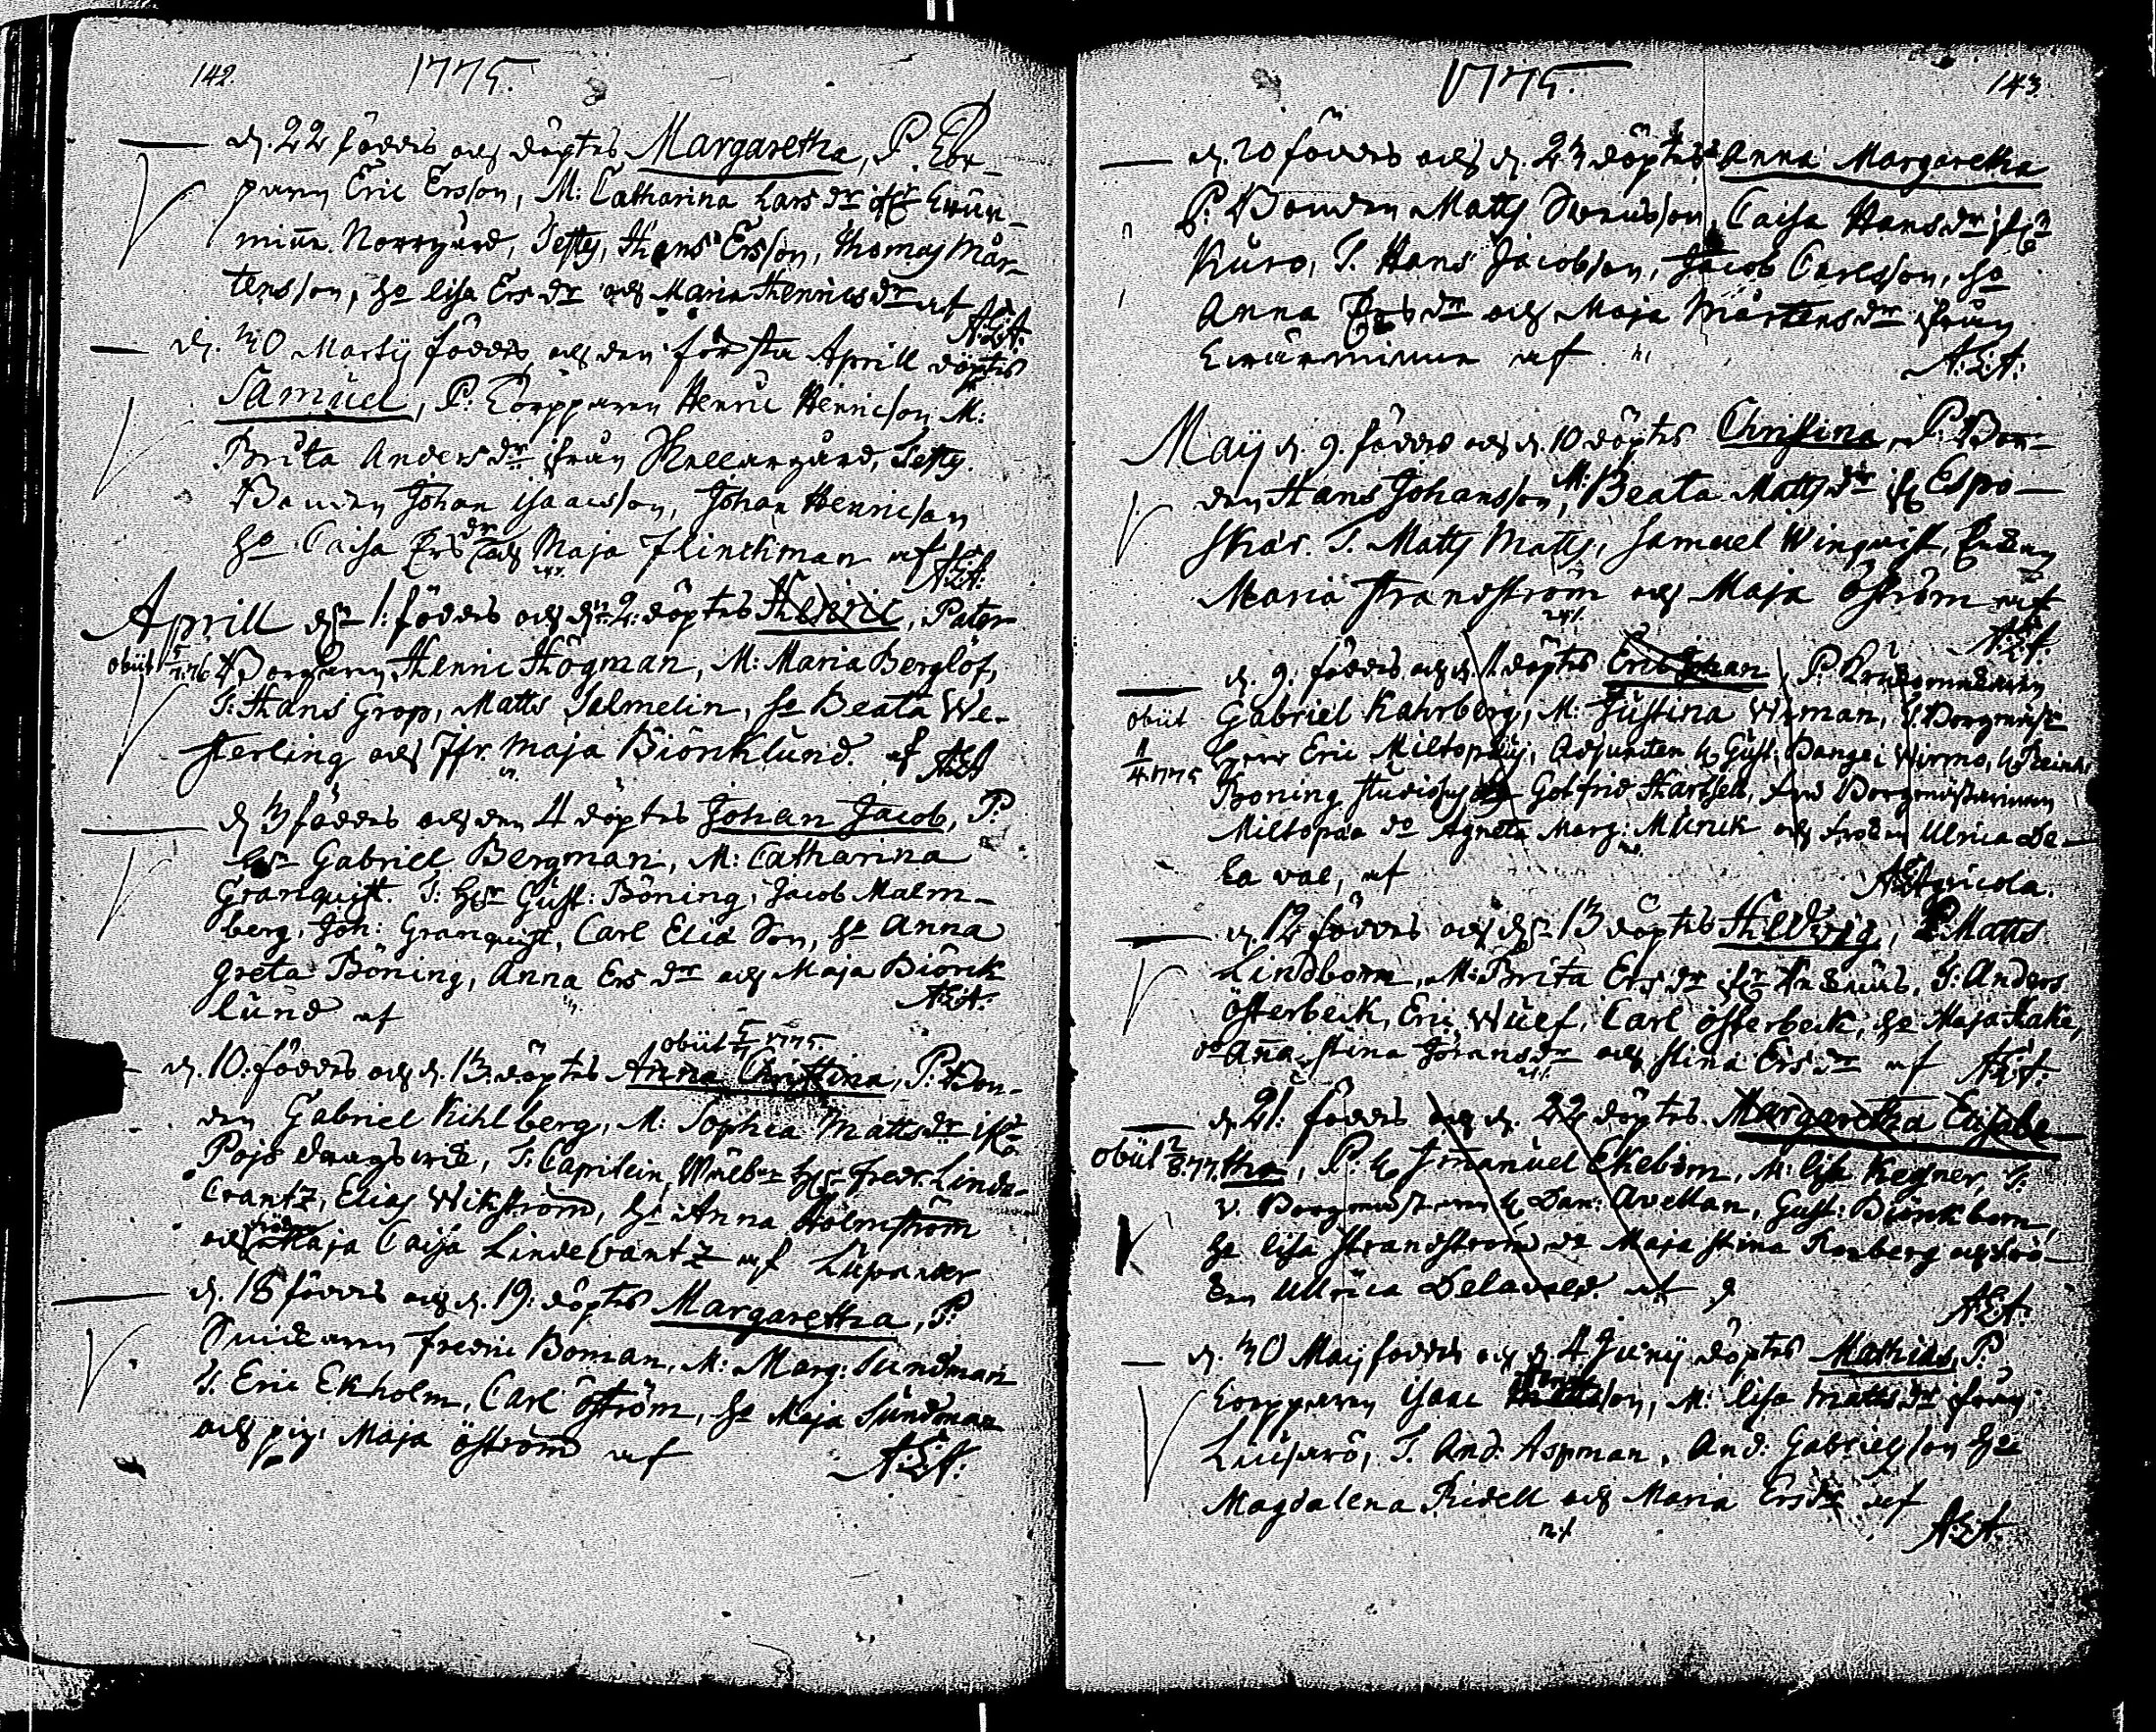 142.
1775.
d. 22 föddes och döptes Margaretha, P. Tor-
paren Eric Ersson, M: Catharina Lars dr ifr
Norrgård, Testes, Hans Ersson, Thomas Mår-
tensson, ho Lisa Ers dr och Maria Henrics dr af
A:E:A:
d. 30 Martij föddes och den första Aprill döptes
Samuel, P: Torpparen Henric Henricson M:
Brita Anders dr ifrån Testes.
Bonden Johan Isaacsson, Johan Henricson
ho Caisa Ers dr och Maja Flinckman af
A:E:A:
Aprill d. 1. föddes och d. 2. döptes Henric, Pater
obiit Borgaren Henric Högman, M: Maria Berglöf,
T: Hans Grop, Matts Salmelin, ho Beata We-
sterling och Jfr. Maja Biörklund. af A:E:A
d. 3 föddes och den 4 döptes Johan Jacob, P.
Hr Gabriel Bergman, M: Catharina
Granquist. T: Hr Gust: Böning, Jacob Malm-
berg, Joh: Granquist, Carl Elia Son, ho Anna
Greta Böning, Anna Ers dr och Maja Biörck
lund af A:E:A:
obiit 1775.
d. 10. föddes och d. 13. döptes Anna Christina, P: Bon-
den Gabriel Kihlberg, M: Sophia Matts dr ifr
Pojo T: Capitein Hr Fredr. Linde-
Crantz, Elias Wikström, ho Anna Holmström
och Fröken Maja Caisa Lindecrantz af Lupander
d. 18 föddes och d. 19. döptes Margaretha, P:
Fredric Boman, M: Marg: Sundman
T. Eric Ekholm, Carl Öström, ho Maja Sundman
och pig. Maja Öström af A:E:A:
1775.
143.
d. 20 föddes och d. 23 döptes Anna Margaretha
P. Bonden Matts Swensson, Caisa Hans dr ifrn
Kuro, T. Hans Jacobson, Jacob Carlsson, ho
Anna Ers dr och Maja Mårtens dr ifrån
af A:E:A:
Maij d. 9. föddes och d. 10 döptes Christina, P: Bon-
den Hans Johansson, M: Beata Matts dr ifr Espo-
skär. T. Matts Matts, Samuel Winqvist,
Maria Strandström och Maja Öström af
A:E:A:
d. 9. föddes och d. 11. döptes Eric Johan, P.
obiit Gabriel Kahrberg, M: Justina Wiman, T. Borgmäst.
Herr Eric Miltopæus, Adjuncten h Gust: Bange i Wirmo, h Reinh.
Böning Studiosus Gotfrid Hartsell, Fru Borgmästarinnan
Miltopæa do Agneta Marg: Munck och Fröken Ulrica De-
la val, af A:E:Agricola.
d. 12 föddes och d. 13 döptes Hedvig, P. Matts
Lindbom, M: Brita Ers dr ifr T: Anders
Österbeck, Eric Wulf, Carl Österbeck, ho Maja Hake,
do Anna Stina Jörans dr och Stina Ers dr af A:E:A:
d. 21. föddes och d. 22 döptes Margaretha Elisabe-
obiit tha, P. h Immanuel Ekebom, M: Lisa Kegner, T:
v. Borgmästaren h Dan: Avellan, Gust: Biörckbom,
ho Lisa Strandström do Maja Stina Rosberg och Frö-
ken Ullrica Delavall. af
A:E:A:
d. 30 Maij föddes och d. 4 Junij döptes Mathias, P.
Torpparen Isaac M: Lisa Matts dr från
T. And: Aspman, And: Gabrielsson ho
Magdalena Ridell och Maria Ers dr af
A:E:A: